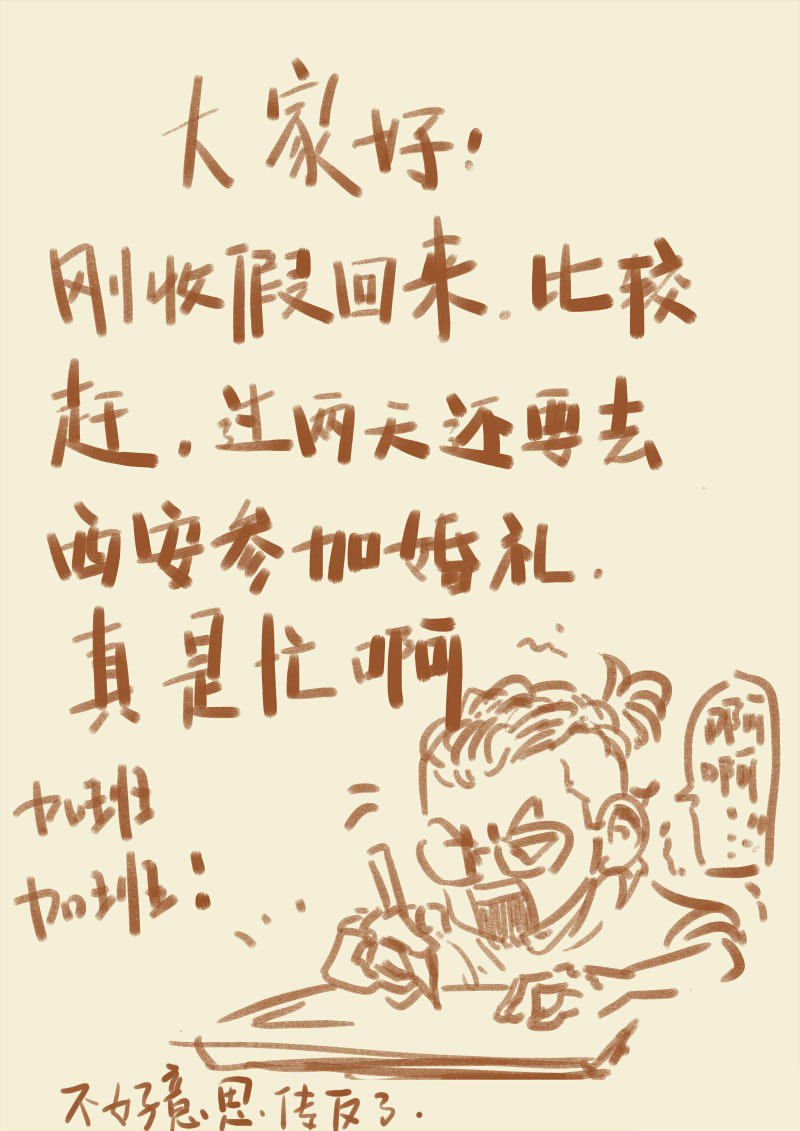 大家好！
刚收假回来.比较
赶，过两天还要去
西安参加婚礼.
真是忙啊
啊
啊
加班
加班！
不好意思.传反了.